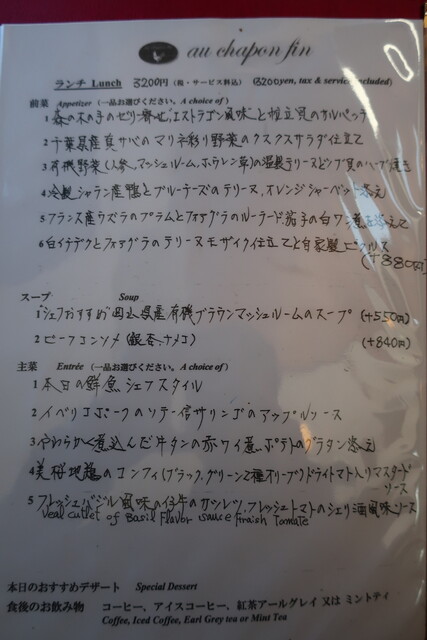 au chapon fin
ランチ Lunch 3200円 (税・サービス料込) (3200yen, tax & service included)
前菜 Appetizer (一品お選びください。A choice of)
1 森の木の子のゼリー寄せ(エストラゴン風味)と帆立貝のカルパッチョ
2 千葉県産真サバのマリネ彩り野菜のクスクスサラダ仕立て
3 有機野菜(人参、マッシュルーム、ホウレン草)の温製テリーヌとツブ貝のハーブ焼き
4 冷製シャラン産鴨とブルーチーズのテリーヌ、オレンジシャーベット添え
5 フランス産ウズラのプラムとフォアグラのルーラード茄子の白ワイン煮を添えて
6 白イチヂクとフォアグラのテリーヌモザイク仕立てと自家製ピクルス
(+880円)
スープ Soup
1 シェフおすすめ 産有機ブラウンマッシュルームのスープ (+550円)
2 ビーフコンソメ(銀杏、ナメコ) (+840円)
主菜 Entrée (一品お選びください。A choice of)
1 本日の鮮魚シェフスタイル
2 イベリコポークのソテー信州リンゴのアップルソース
3 やわらかく煮込んだ牛タンの赤ワイン煮、ポテトのグラタン添え
4 美桜地鶏のコンフィ(ブラック、グリーン2種オリーブ)ドライトマト入りマスタード
ソース
5 フレッシュバジル風味の仔牛のカツレツ、フレッシュトマトのシェリー酒風味ソース
Veal cutlet of Basil Flavor sauce fraish Tomate
本日のおすすめデザート Special Dessert
食後のお飲み物 コーヒー、アイスコーヒー、紅茶アールグレイ 又は ミントティ
Coffee, Iced Coffee, Earl Grey tea or Mint Tea